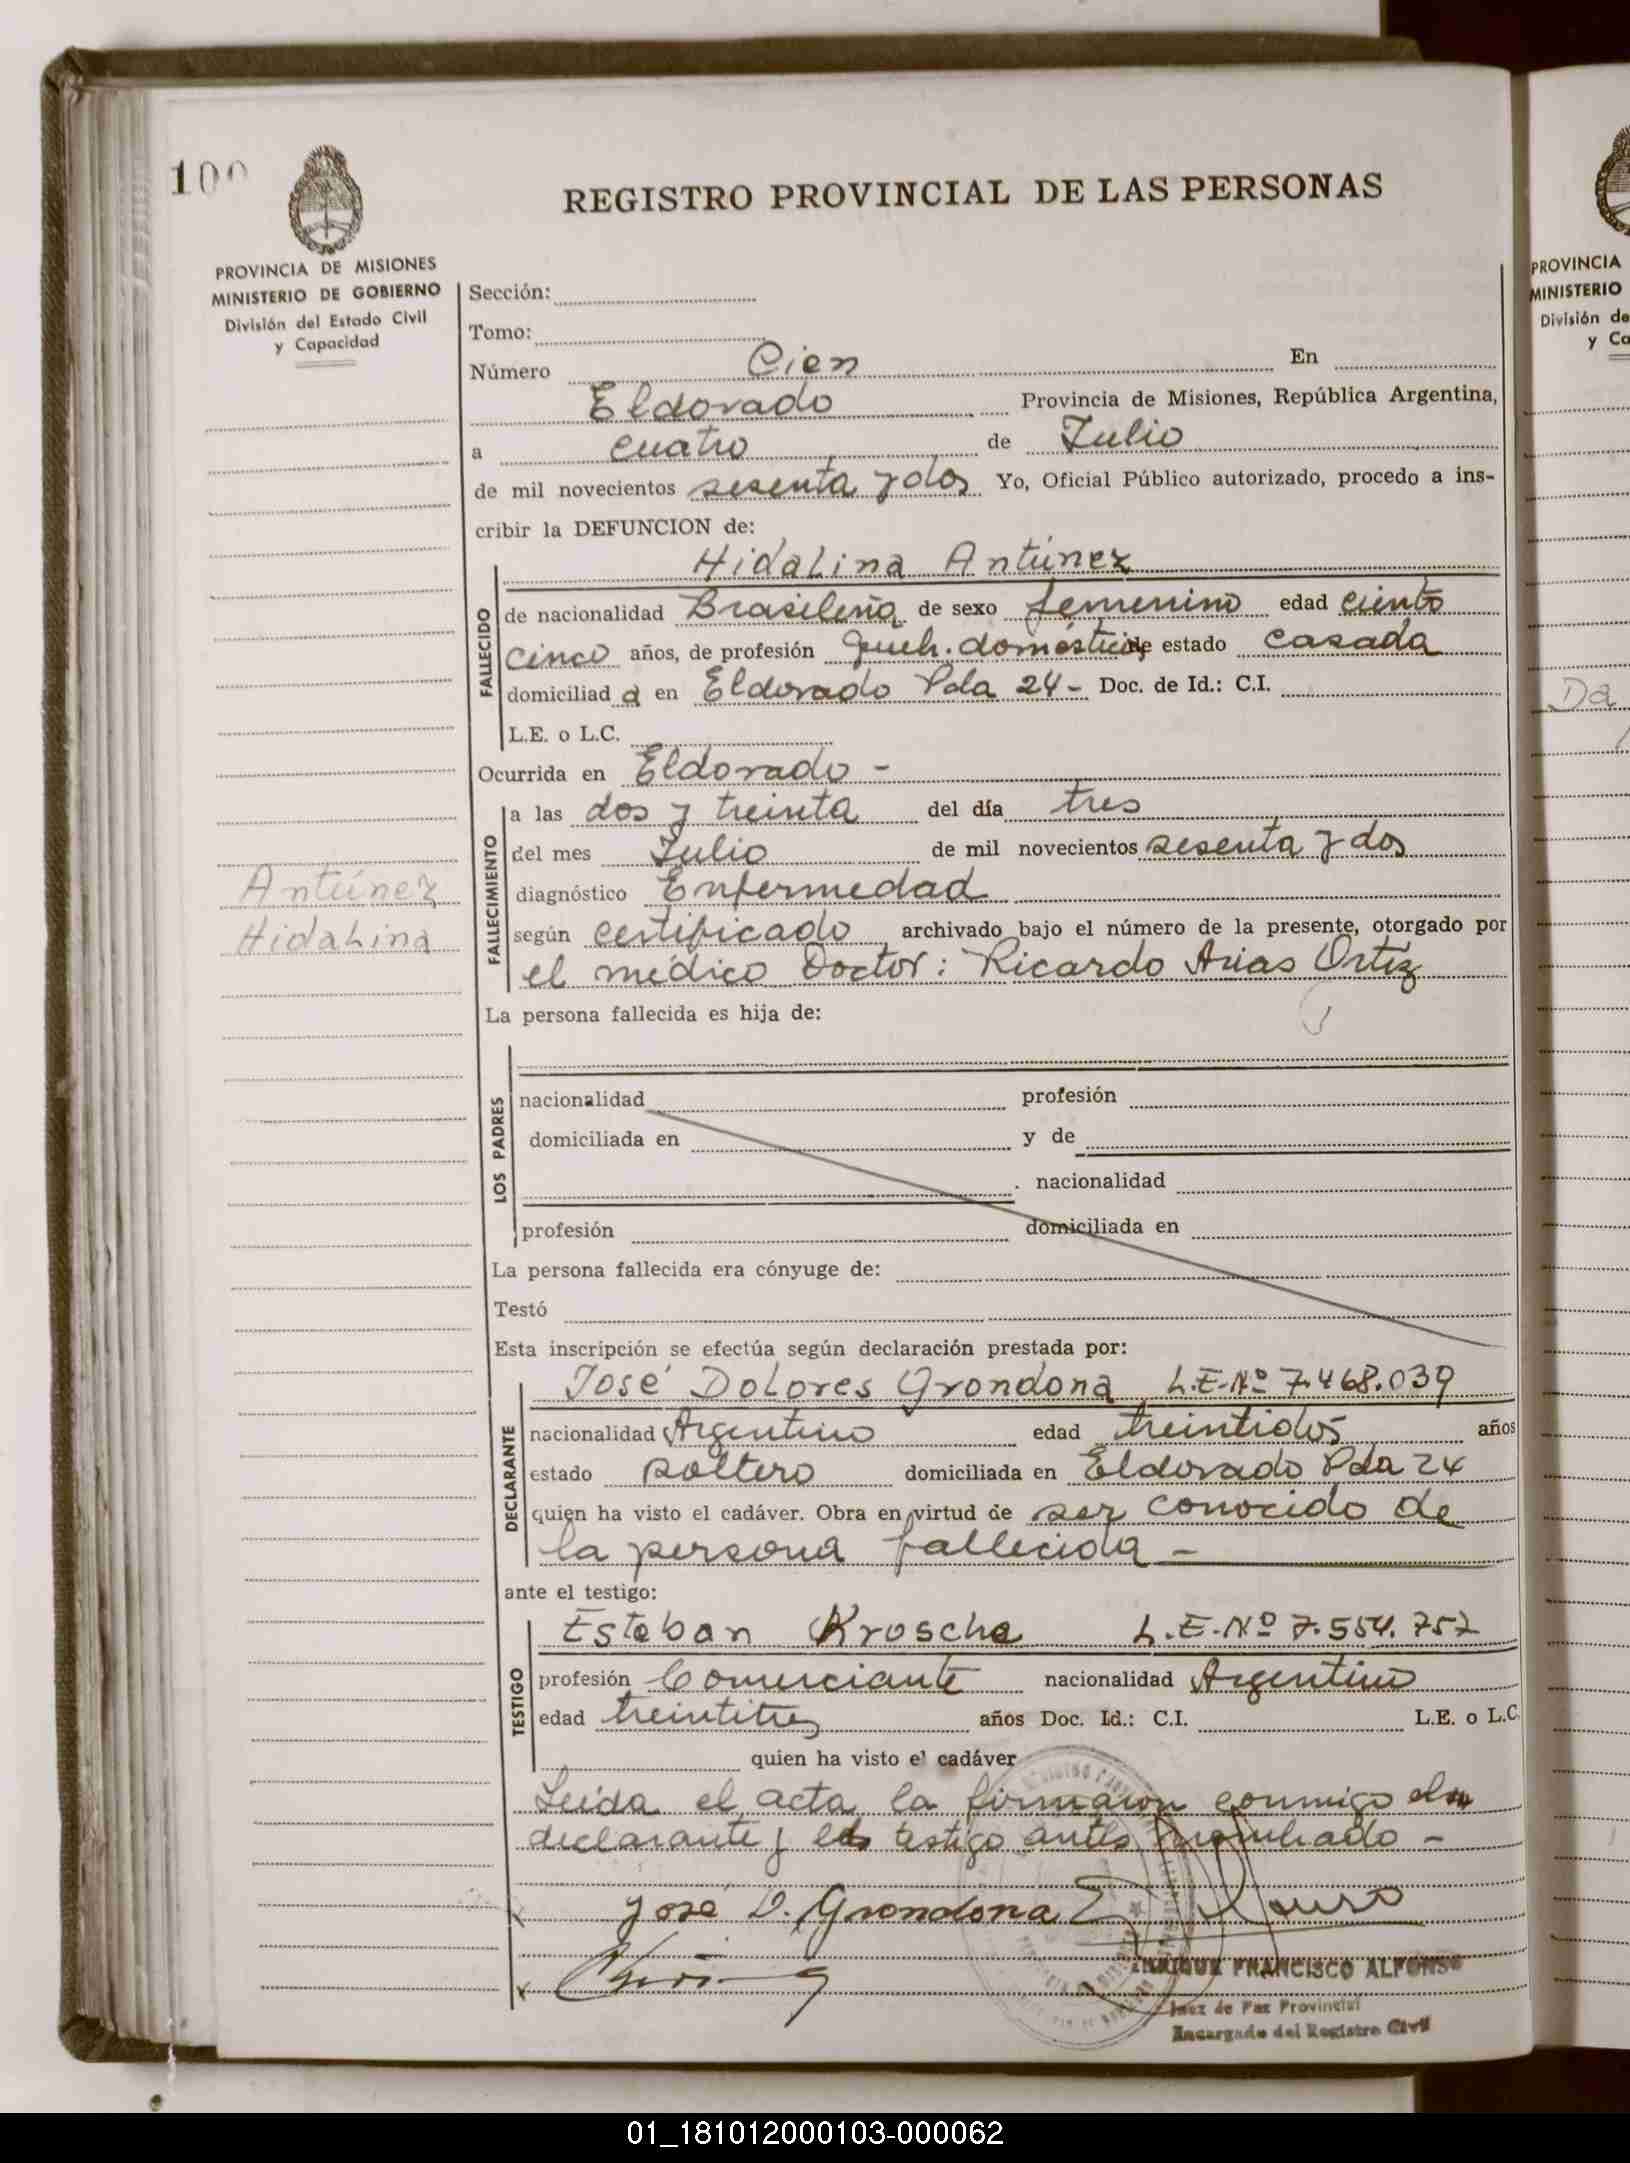 100
REGISTRO PROVINCIAL DE LAS PERSONAS
PROVINCIA DE MISIONES
MINISTERIO DE GOBIERNO
División del Estado Civil
y Capacidad
Sección:
Tomo:
Número Cien En
Eldorado Provincia de Misiones, República Argentina,
a cuatro de Julio
de mil novecientos sesenta y dos Yo, Oficial Público autorizado, procedo a ins-
cribir la DEFUNCION de:
Hidalina Antúnez
FALLECIDO
de nacionalidad Brasileña de sexo femenino edad ciento
cinco años, de profesión queh. domésticos de estado casada
domiciliad a en Eldorado Pda 24 - Doc. de Id.: C.I.
L.E. o L.C.
Ocurrida en Eldorado -
FALLECIMIENTO
a las dos y treinta del día tres
del mes Julio de mil novecientos sesenta y dos
diagnóstico Enfermedad
según certificado archivado bajo el número de la presente, otorgado por
el médico Doctor: Ricardo Arias Ortiz
Antúnez
Hidalina
La persona fallecida es hija de:
LOS PADRES
nacionalidad profesión
domiciliada en y de
. nacionalidad
profesión domiciliada en
La persona fallecida era cónyuge de:
Testó
Esta inscripción se efectúa según declaración prestada por:
José Dolores Grondona L.E.Nº 7.468.039
DECLARANTE
nacionalidad Argentino edad treintidos años
estado soltero domiciliada en Eldorado Pda 24
quien ha visto el cadáver. Obra en virtud de ser conocido de
la persona fallecida -
ante el testigo:
Esteban Krosche L.E.Nº 7.554.757
TESTIGO
profesión Comerciante nacionalidad Argentino
edad treintitres años Doc. Id.: C.I. L.E. o L.C.
quien ha visto el cadáver
Leída el acta la firmaron conmigo el
declarante y el testigo antes nombrado -
José D. Grondona
ENRIQUE FRANCISCO ALFONSO
Juez de Paz Provincial
Encargado del Registro Civil
PROVINCIA
MINISTERIO
División de
y Ca
Da
01_181012000103-000062